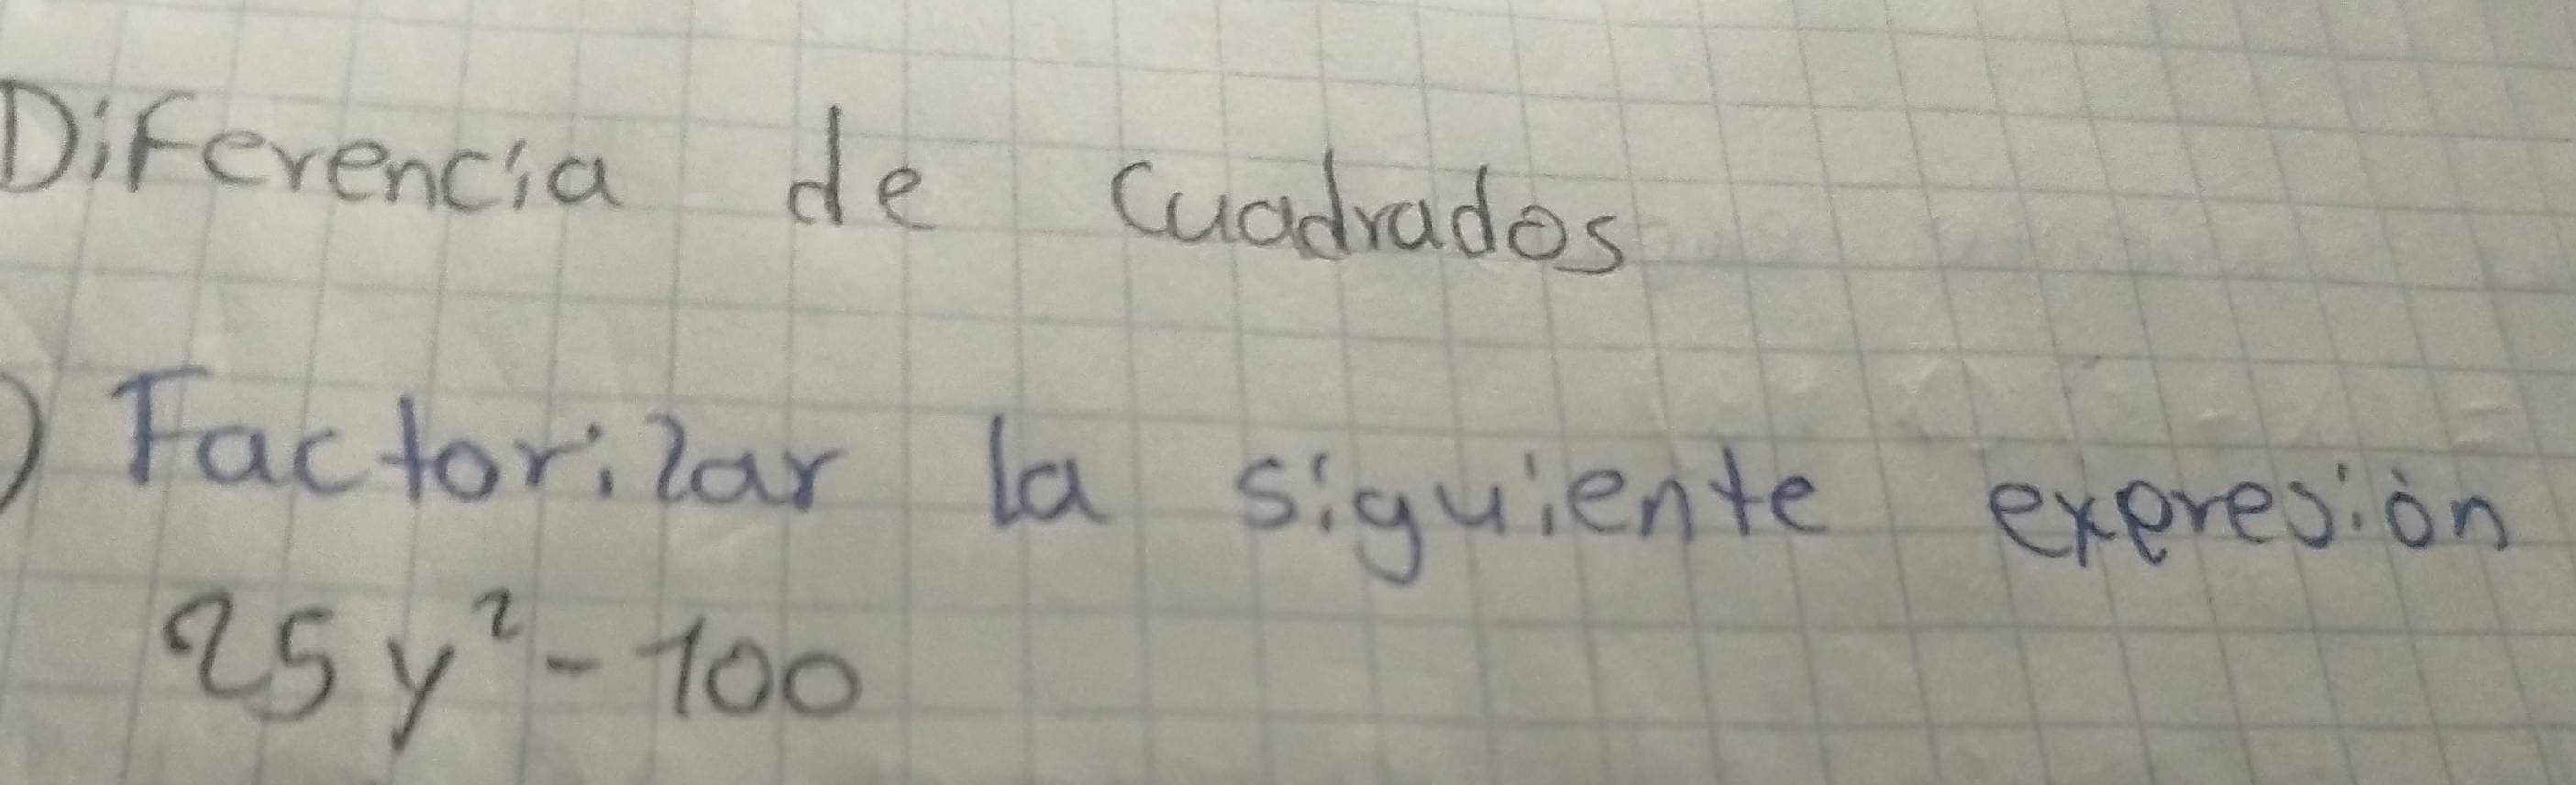 Diferencia de cuadrados
) Factorizar la siguiente expresión
25y² - 100